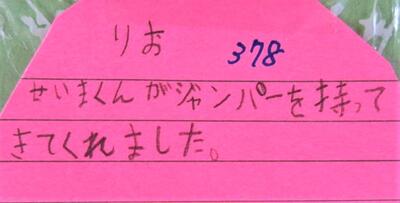 りお
378
せいまくんがジャンパーを持って
きてくれました。